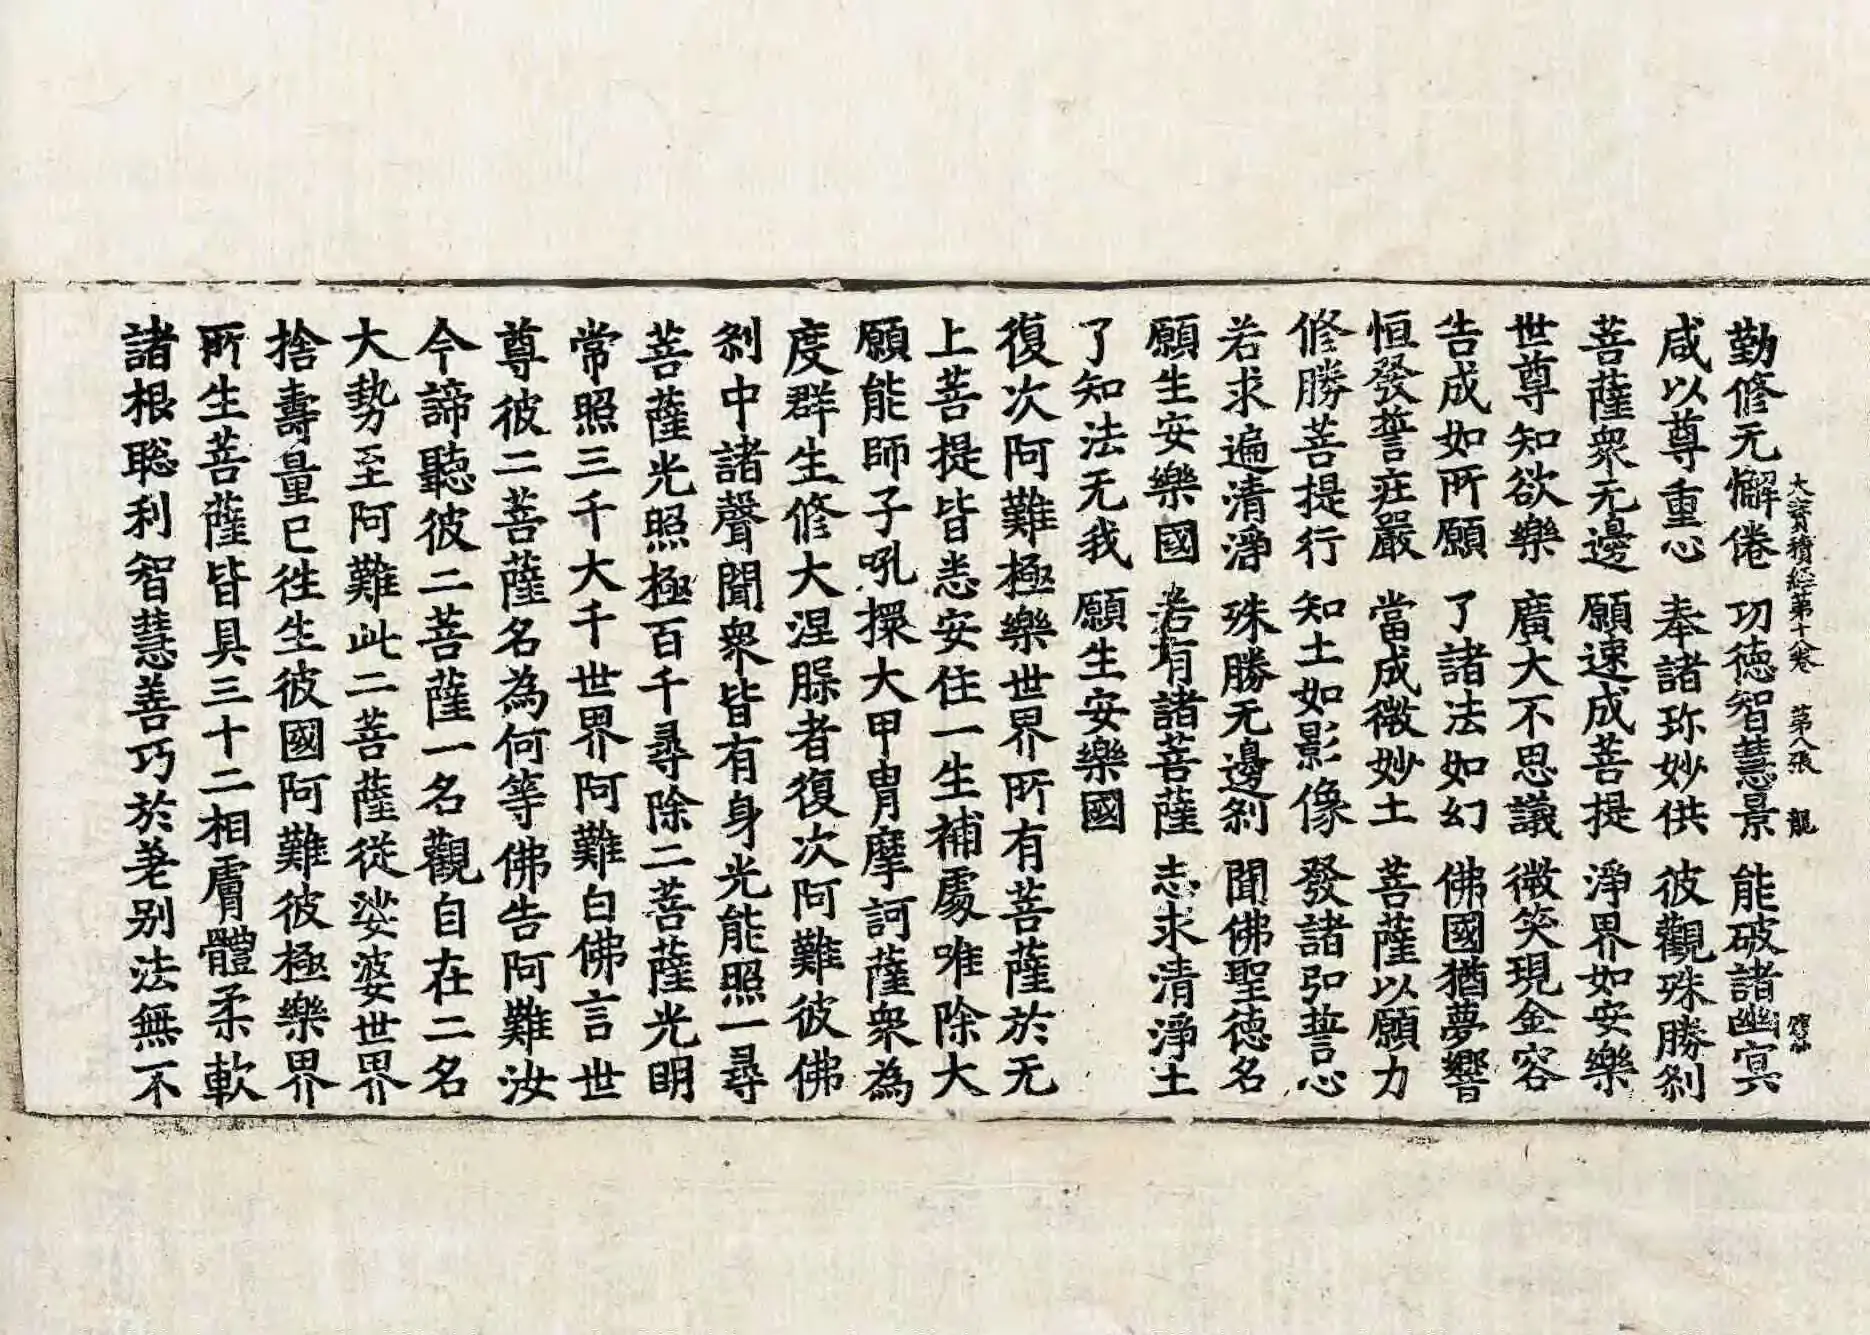 大寶積經第十八卷 第八張 龍
勤修无懈倦 功德智慧景 能破諸幽冥
咸以尊重心 奉諸珎妙供 彼觀殊勝刹
菩薩衆无邊 願速成菩提 淨界如安樂
世尊知欲樂 廣大不思議 微笑現金容
告成如所願 了諸法如幻 佛國猶夢響
恒發誓莊嚴 當成微妙土 菩薩以願力
修勝菩提行 知土如影像 發諸弘誓心
若求遍清淨 殊勝无邊刹 聞佛聖德名
願生安樂國 若有諸菩薩 志求清淨土
了知法无我 願生安樂國
復次阿難極樂世界所有菩薩於无
上菩提皆悉安住一生補處唯除大
願能師子吼擐大甲胄摩訶薩衆為
度群生修大涅脲者復次阿難彼佛
刹中諸聲聞衆皆有身光能照一尋
菩薩光照極百千尋除二菩薩光明
常照三千大千世界阿難白佛言世
尊彼二菩薩名為何等佛告阿難汝
今諦聽彼二菩薩一名觀自在二名
大勢至阿難此二菩薩從娑婆世界
捨壽量已徃生彼國阿難彼極樂界
所生菩薩皆具三十二相膚體柔軟
諸根聡利智慧善巧於差别法無不